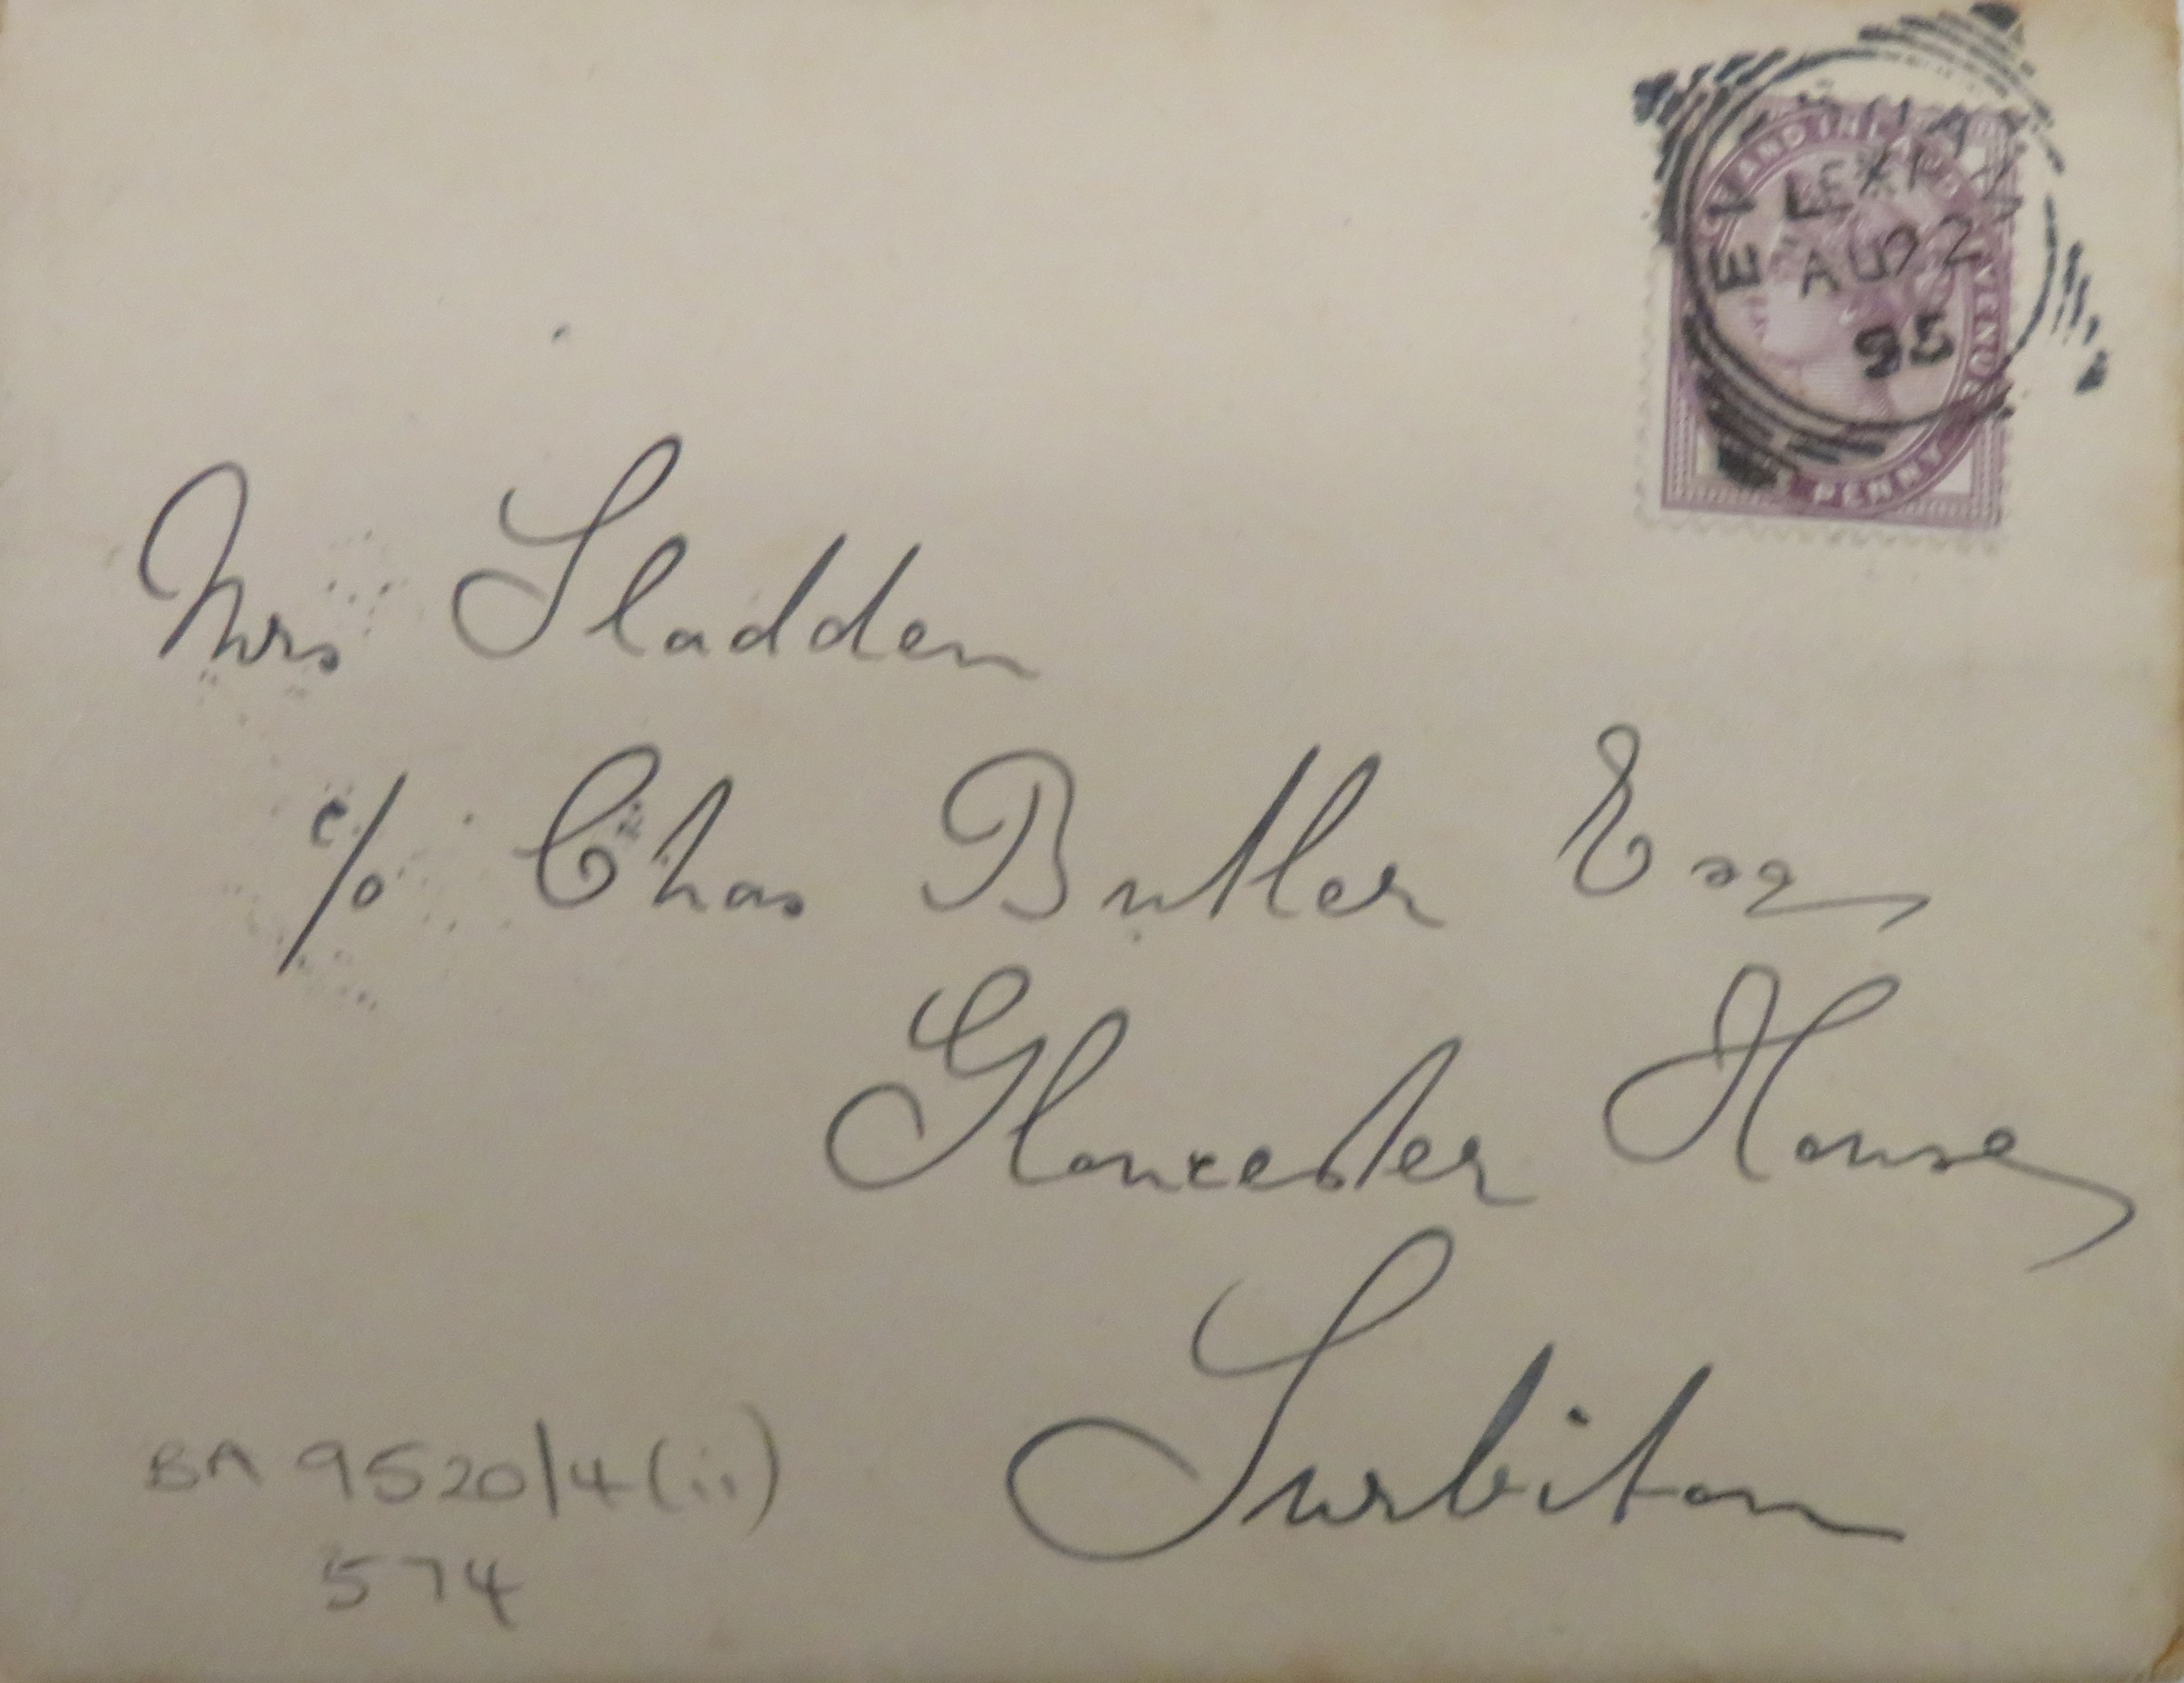 LEXP
AU 2
95
PENNY
Mrs Sladden
c/o Chas Butler Esq
Gloucester House
Surbiton
BA 9520/4(ii)
574